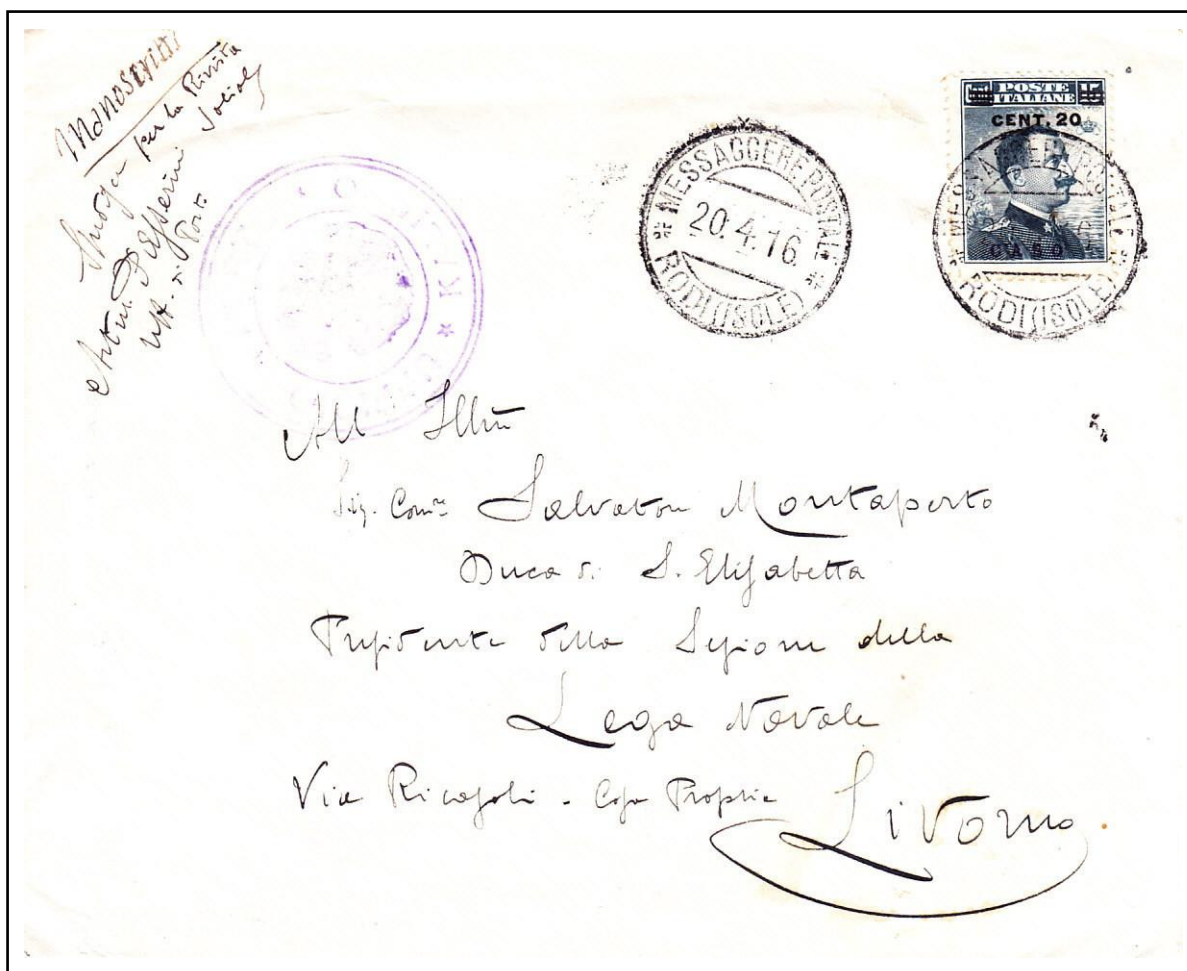 Manoscritti
per la Rivista
Uff. di Porto
MESSAGGERE POSTALE
20.4.16
* RODI (ISOLE) *
POSTE
ITALIANE
15
CENT. 20
* MESSAGGERE POSTALE *
RODI (ISOLE)
All Illm̃
Sig. Comm
Salvatore Montaperto
Duca di S. Elisabetta
Presidente della Sezione della
Lega Navale
Via Ricasoli - Casa Propria
Livorno